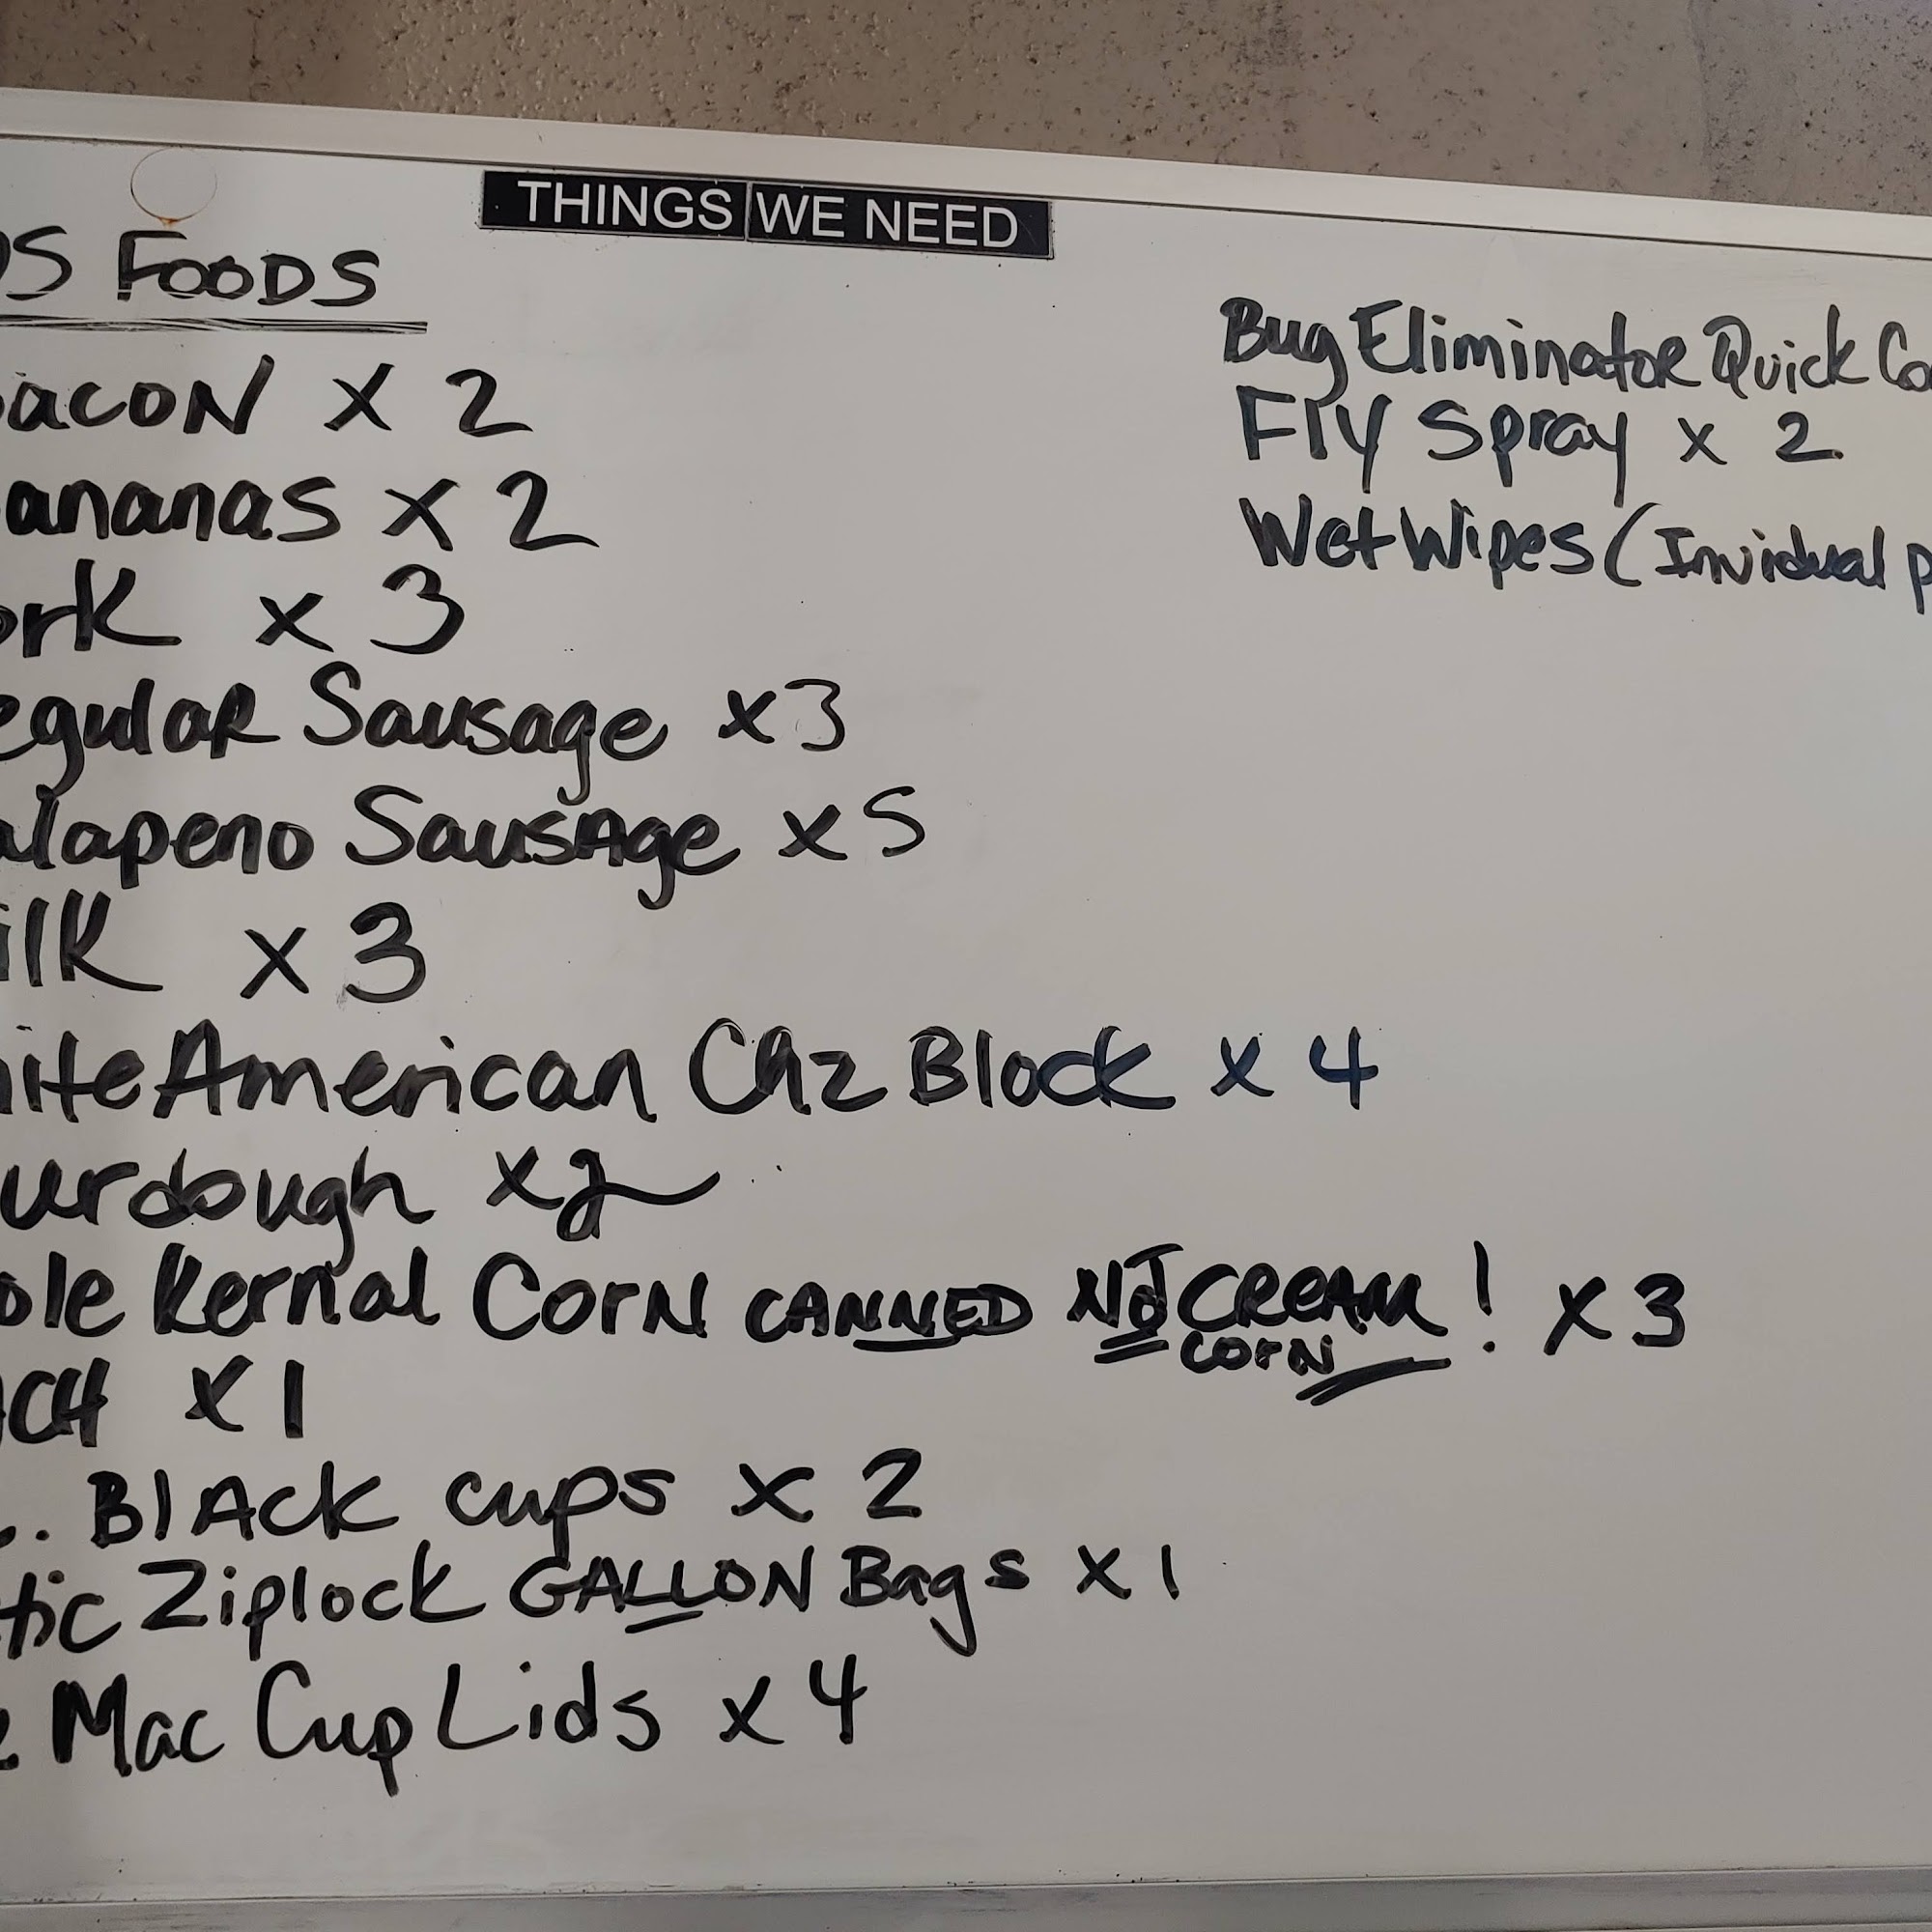 THINGS WE NEED
S FOODS
acon x 2
ananas x 2
ork x 3
egular Sausage x3
alapeno Sausage x5
ilk x 3
ite American Chz Block x 4
urdough x2
ole Kernal Corn CANNED NOT CREAM! x3
CORN
CH x1
.. Black cups x 2
tic Ziplock GALLON Bags x1
Mac Cup Lids x 4
Bug Eliminator Quick Co
Fly Spray x 2
Wet Wipes (Invidual p